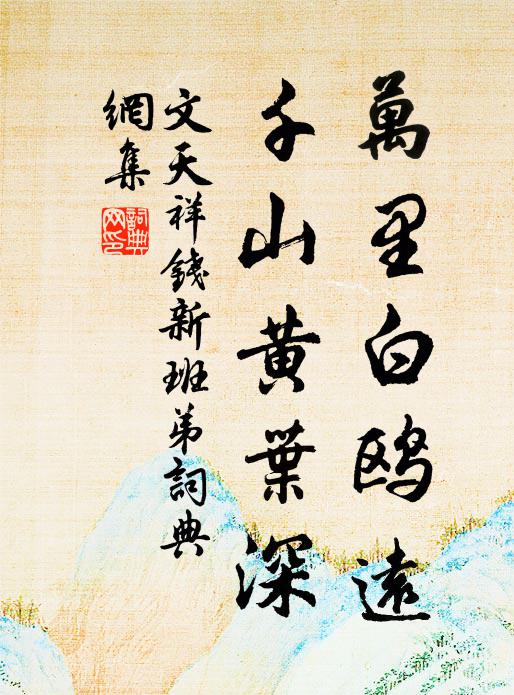 萬里白鷗遠
千山黃葉深
文天祥錢新班弟詞典
網集
詞典網印